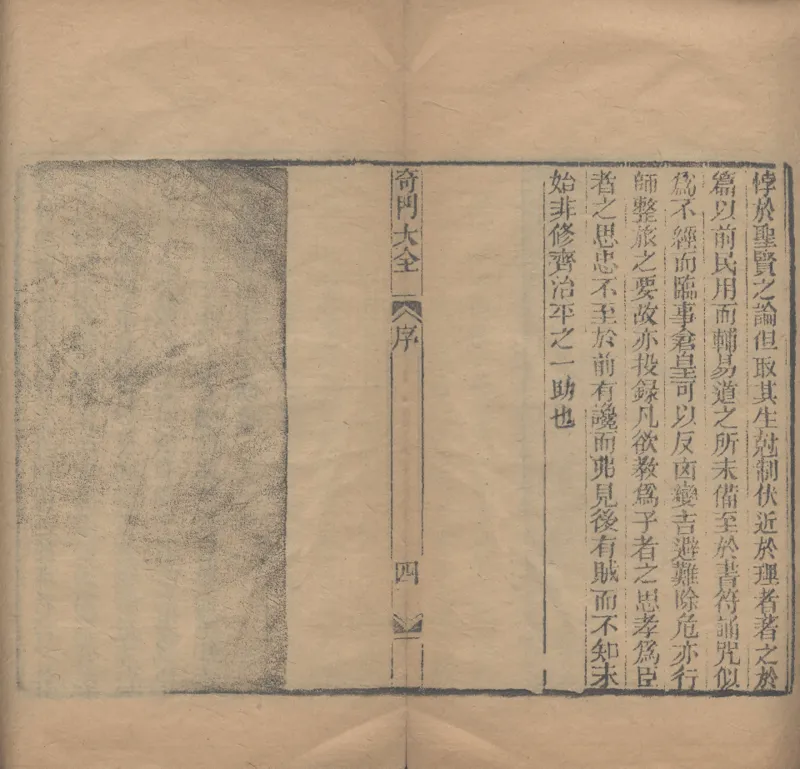 悖於聖賢之論但取其生尅制伏近於理者著之於
篇以前民用而輔易道之所未備至於書符誦咒似
爲不經而臨事倉皇可以反凶變吉避難除危亦行
師整旅之要故亦投録凡欲教爲子者之思孝爲臣
者之思忠不至於前有讒而弗見後有賊而不知未
始非修齊治平之一助也
奇門大全
序
四